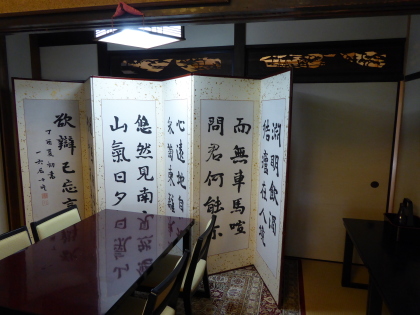 淵明飲酒
結廬在人境
而無車馬喧
問君何能尓
心遠地自
采菊東籬
悠然見南
山氣日夕
欲辯已忘言